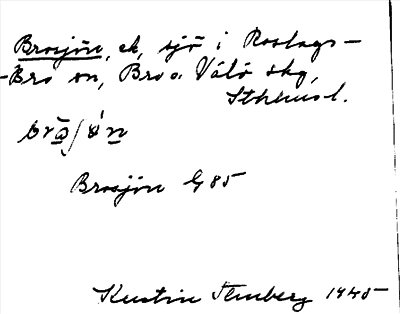 Brosjön, ek, sjö i Roslags-
-Bro sn, Bro o. Väló skg,
Sthlms l.
Brosjön G 85
Kerstin Flenberg 1945